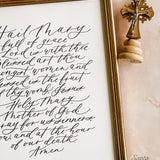 Hail Mary
full of grace
Lord is with thee
Blessed art thou
amongst women and
blessed is the fruit
of thy womb Jesus
Holy Mary
Mother of God
pray for us sinners
now and at the hour
of our death
Amen